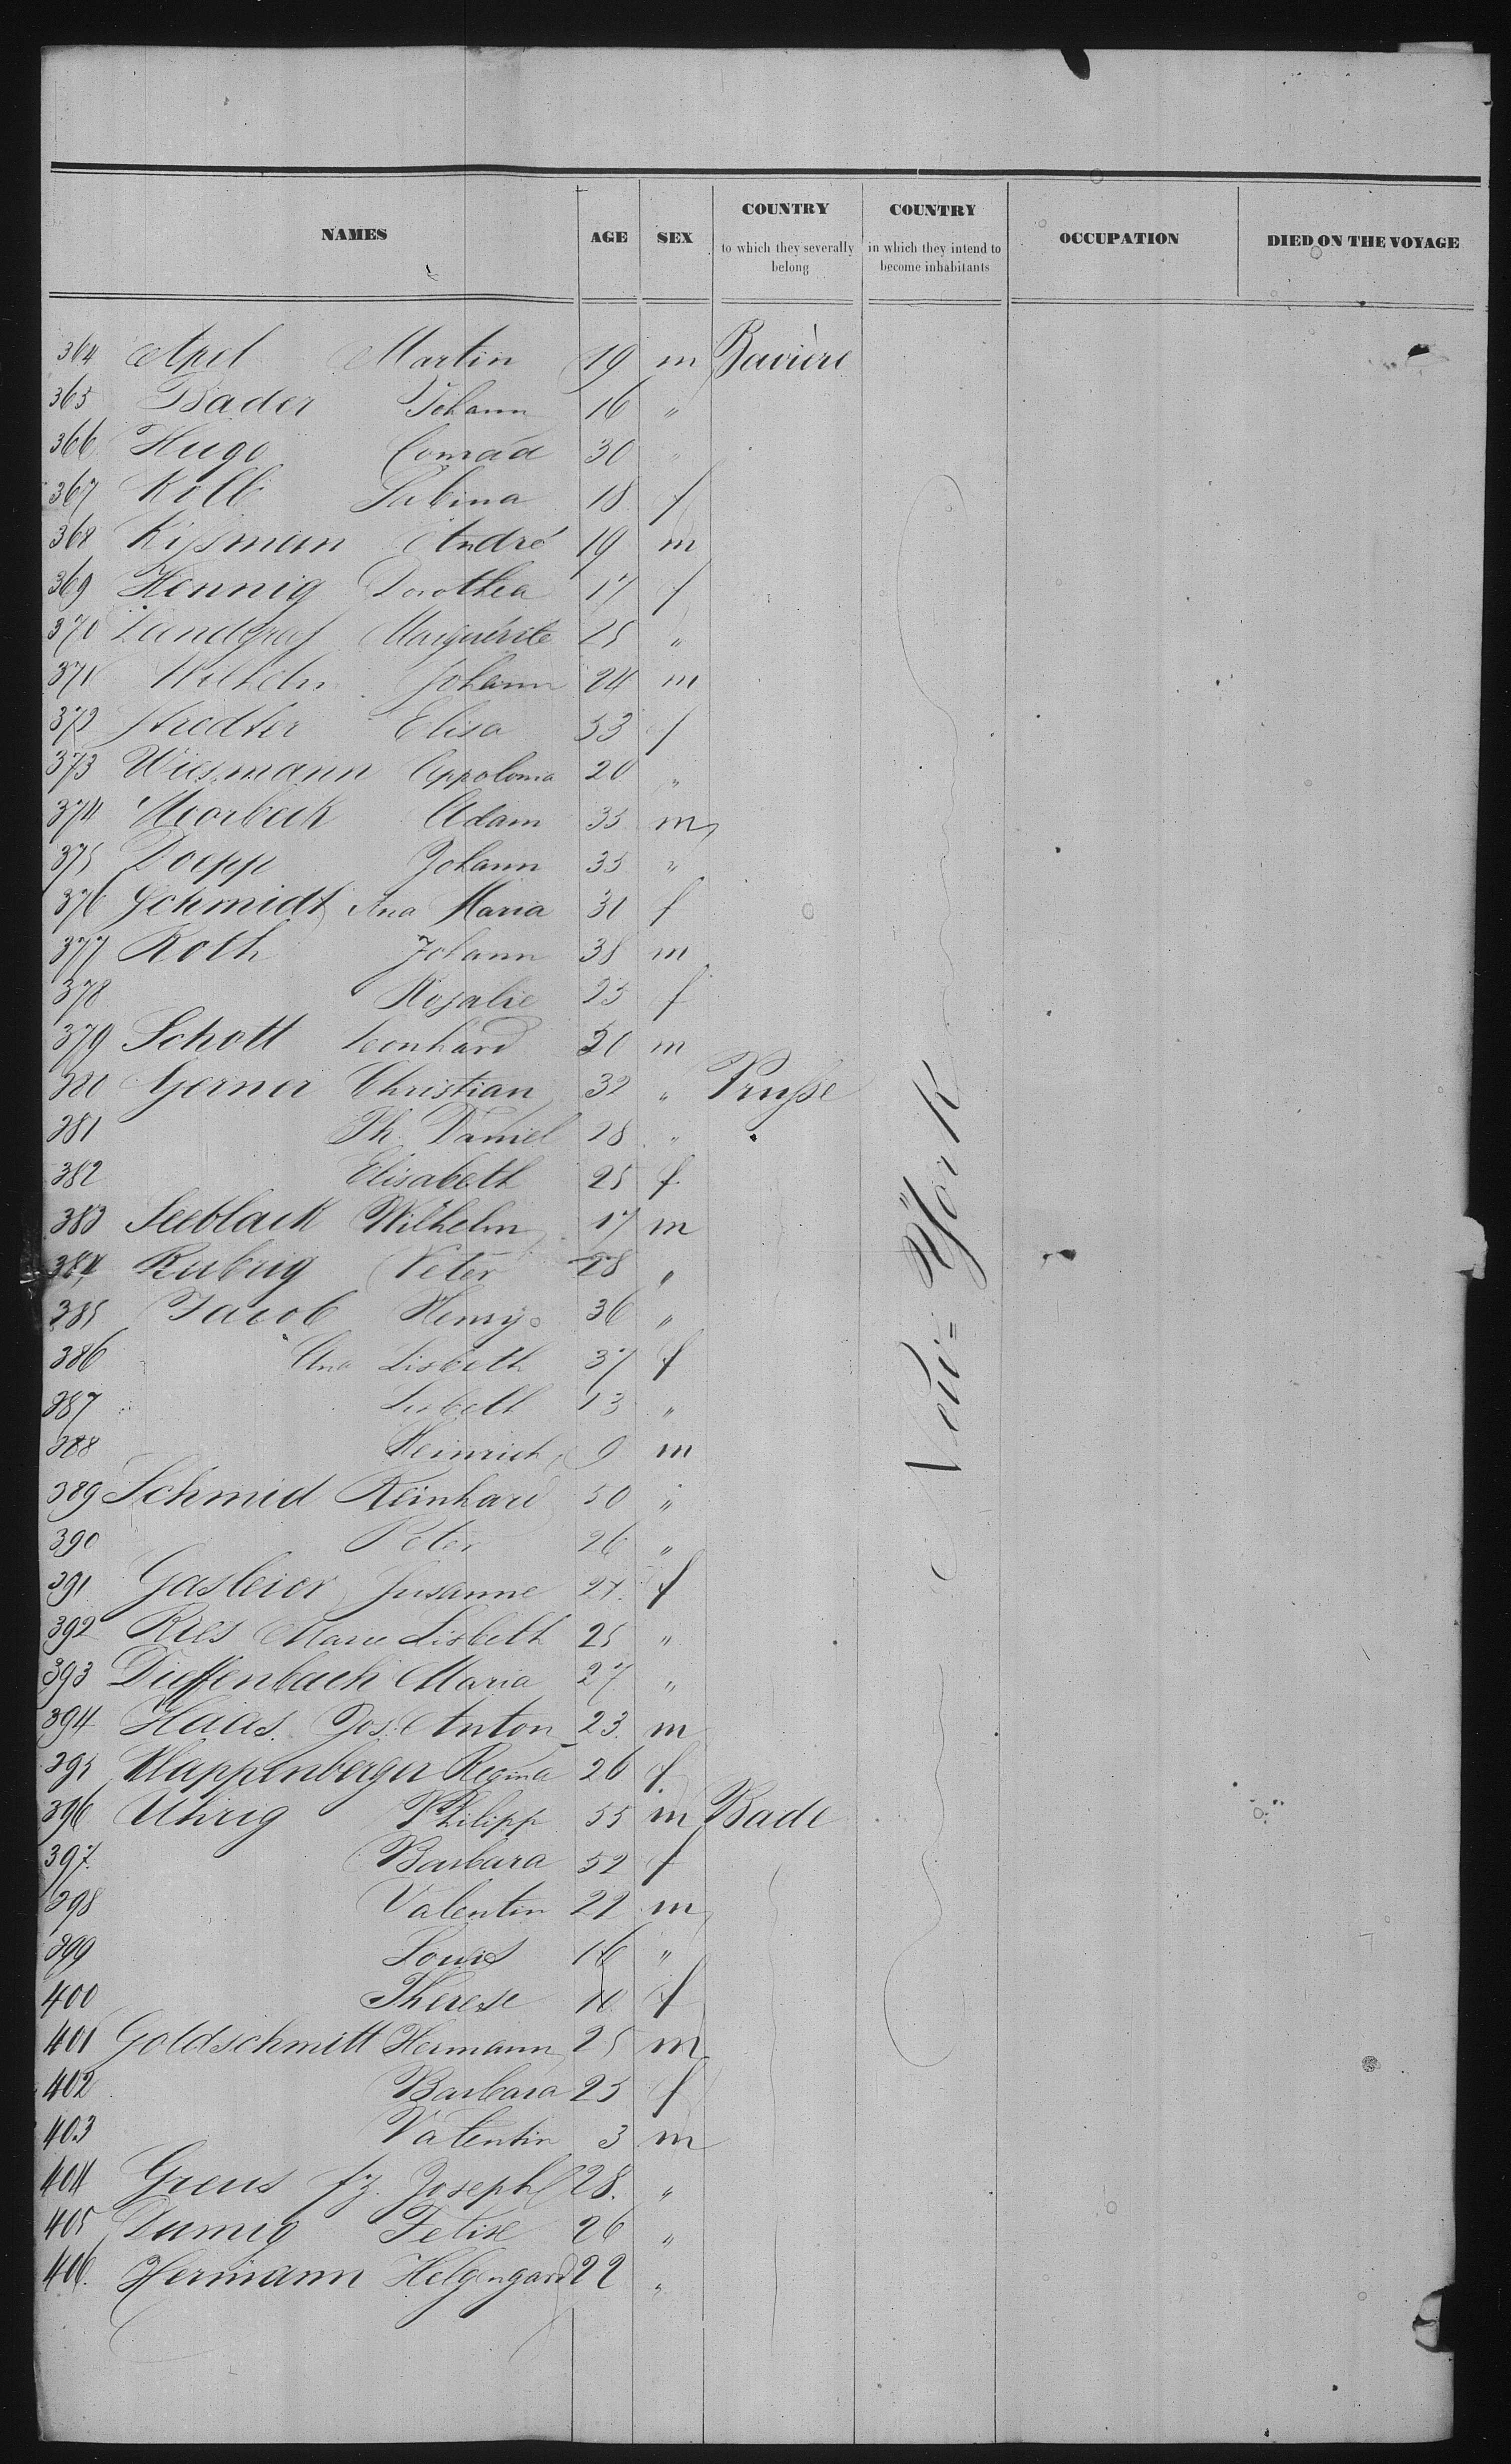 NAMES AGE SEX COUNTRY to which they severally belong COUNTRY in which they intend to become inhabitants OCCUPATION DIED ON THE VOYAGE
364 Apel Martin 19 m Bavière
365 Bader Johann 16 "
366 Hugo Conrad 30 "
367 Kolb Sabina 18 f
368 Kissman André 19 m
369 Hennig Dorothea 17 f
370 Landgraf Marguérite 25 "
371 Wilhelm Johann 24 m
372 Elisa 53 f
373 Wiesmann Appolonia 20 "
374 Moorbeck Adam 35 m
375 Doepp Johann 35 "
376 Schmidt Ana Maria 31 f
377 Roth Johann 38 m
378 Rosalie 25 f
379 Schott Leonhard 20 m
380 Gerner Christian 32 " Prusse
381 Ph. Daniel 28 "
382 Elisabeth 25 f
383 Seeblack Wilhelm 17 m
384 Rubrig Peter 28 "
385 Jacob Henry 36 "
386 Ana Lisbeth 37 f
387 Lisbeth 13 "
388 Heinrich 9 m
389 Schmid Reinhard 50 "
390 Peter 26 "
391 Gasleier Susanne 24 f
392 Ries Marie Lisbeth 25 "
393 Dieffenbach Maria 27 "
394 Haas Jos. Anton 23 m
395 Klappenberger Regina 26 f
396 Uhrig Philipp 55 m Bade
397 Barbara 52 f
398 Valentin 22 m
399 Louis 16 "
400 Therese 10 f
401 Goldschmitt Hermann 25 m
402 Barbara 25 f
403 Valentin 3 m
404 Greus fz. Joseph 28 "
405 Dumig Felise 26 "
406 Hermann Helgengard 22 "
New-York